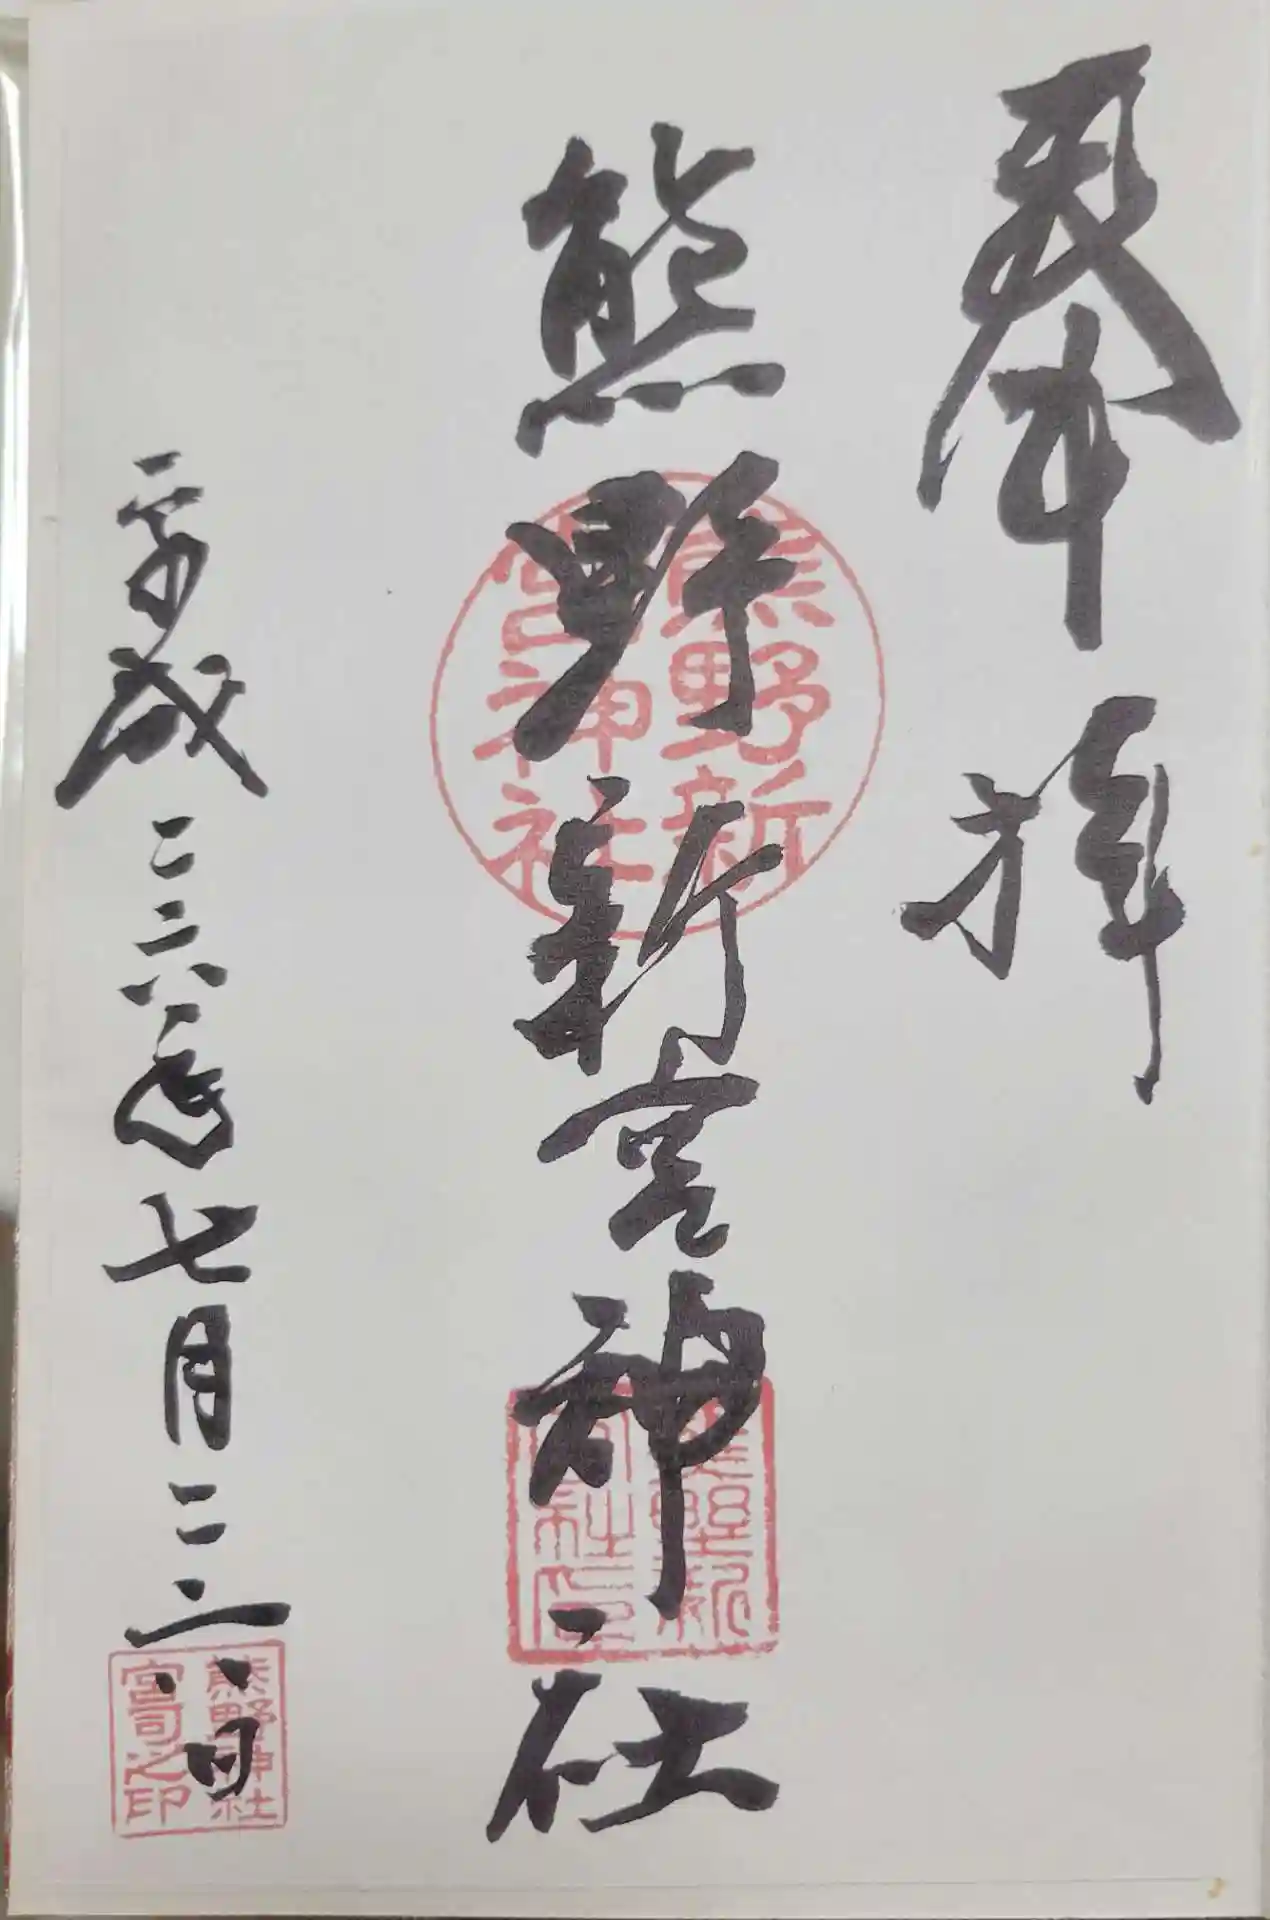 奉拝
熊野新宮神社
熊野新宮神社
平成二六年七月二六日
熊野神社宮司之印